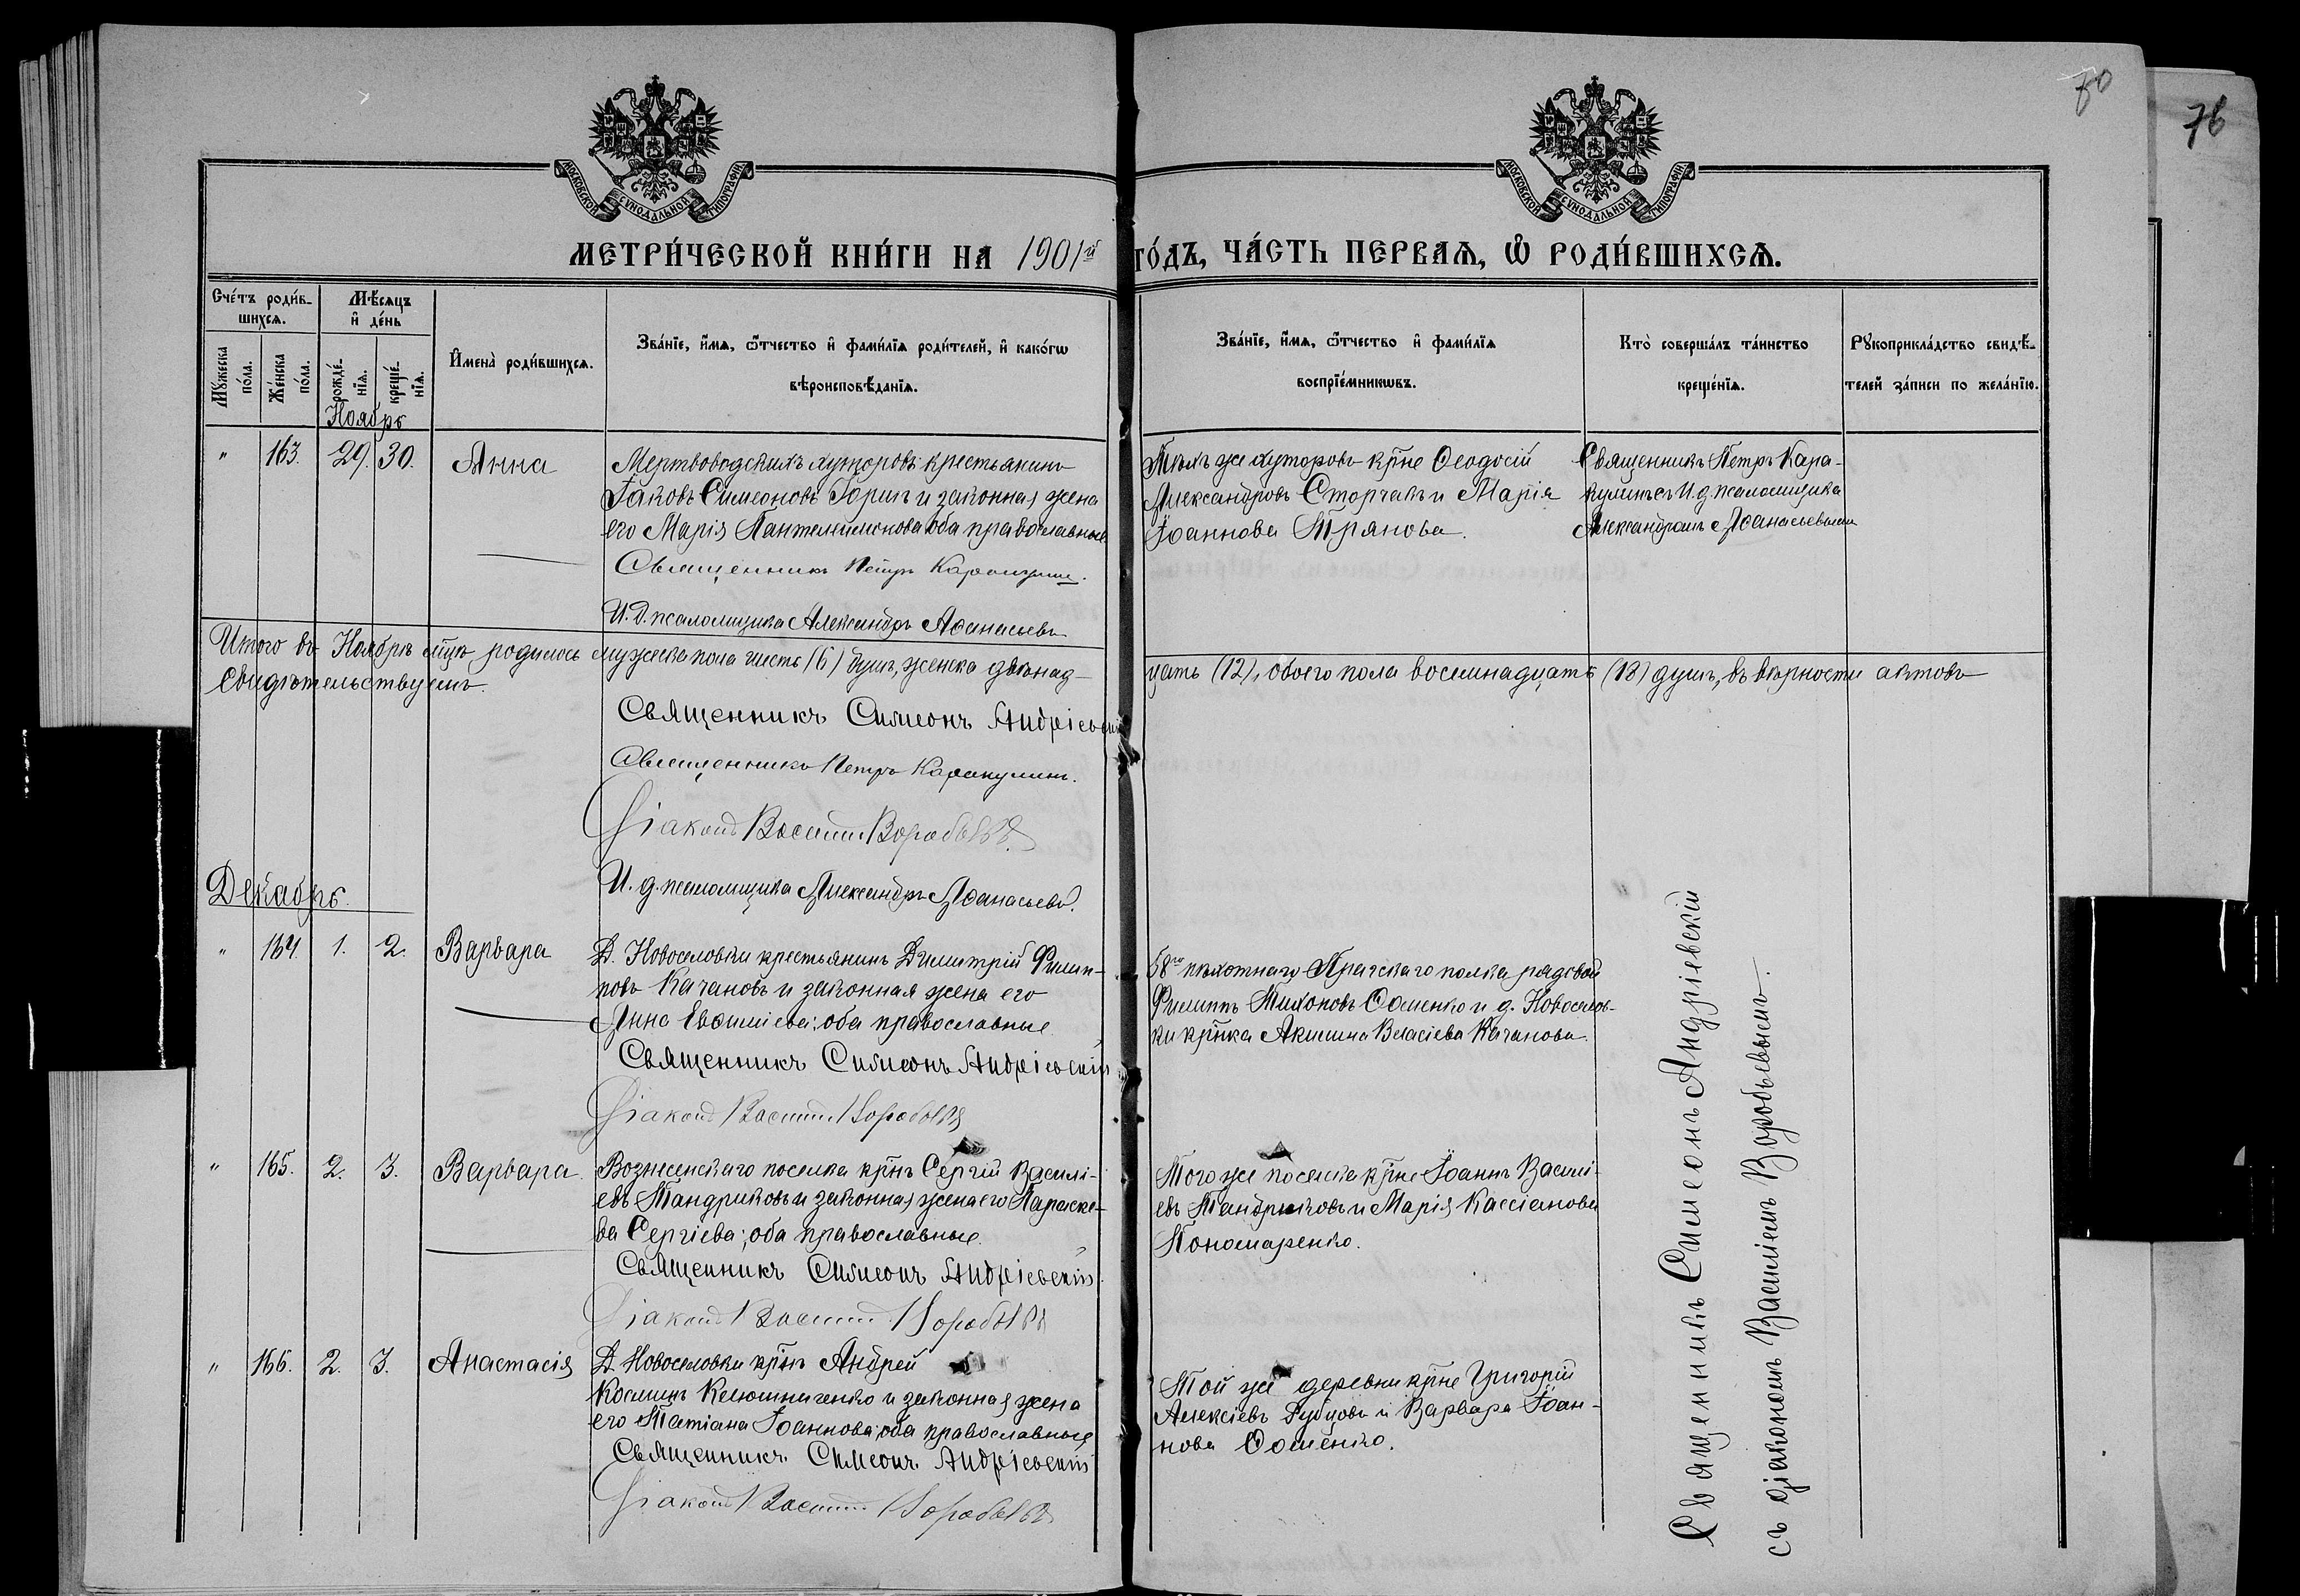 70
76
МОСКОВСКОЙ СУНОДАЛЬНОЙ ТИПОГРАФІИ
МОСКОВСКОЙ СУНОДАЛЬНОЙ ТИПОГРАФІИ
МЕТРИ́ЧЕСКОЙ КНИ́ГИ НА 1901й ГО́ДЪ, ЧА́СТЬ ПЕРВАѦ, Ѡ҆ РОДИ́ВШИХСѦ.
Сче́тъ роди́в-
шихсѧ.
Мѣ́сѧцъ
и҆ де́нь
Мꙋ́жеска
по́ла.
Же́нска
по́ла.
рожде́-
нїѧ.
креще́-
нїѧ.
И҆мена̀ роди́вшихсѧ.
Зва́нїе, и҆́мѧ, ѻ҆́тчество и҆ фами́лїѧ роди́телей, и҆ како́гѡ
вѣроисповѣ́данїѧ.
Зва́нїе, и҆́мѧ, ѻ҆́тчество и҆ фами́лїѧ
воспрїе́мникѡвъ.
Кто̀ соверша́лъ та́инство
креще́нїѧ.
Рꙋкоприкла́дство свидѣ́-
телей за́писи по жела́нїю.
Ноябрь
" 163. 29. 30. Анна
Мертвоводскихъ хуторовъ крестьянинъ
Іаковъ Симеоновъ и законная жена
его Марія Пантелеимонова оба православные
Священникъ Петръ Каракулинъ.
И. Д. псаломщика Александръ Аѳанасьевъ
Тѣхъ же хуторовъ кр̃не Ѳеодосій
Александровъ Сторчакъ и Марія
Іоаннова
Священникъ Петръ Кара-
кулинъ съ И. д. псаломщика
Александромъ Аѳанасьевымъ
Итого въ Ноябрѣ м̃цѣ родилось мужеска пола шесть (6) душъ, женска двѣнад-
цать (12), обоего пола восемнадцать (18) душъ, въ вѣрности актовъ
свидѣтельствуемъ.
Священникъ Симеонъ Андріевскій
Священникъ Петръ Каракулинъ.
Діаконъ Василій Воробьевъ.
И. д. псаломщика Александръ Аѳанасьевъ.
Декабрь.
" 164. 1. 2. Варвара
Д. Новоселовки крестьянинъ Димитрій Филип-
повъ Качановъ и законная жена его
Анна Евѳиміева; оба православные
Священникъ Симеонъ Андріевскій
Діаконъ Василій Воробьевъ
58го пѣхотнаго Прагскаго полка рядовой
Филиппъ Тихоновъ Ѳоменко и д. Новоселов-
ки кр̃нка Акилина Власіева Качанова.
" 165. 2. 3. Варвара.
Вознесенскаго поселка кр̃нъ Сергій Василі-
евъ Тандриковъ и законная жена его Параске-
ва Сергіева; оба православные.
Священникъ Симеонъ Андріевскій
Діаконъ Василій Воробьевъ
Того же поселка кр̃не Іоаннъ Василі-
евъ Тандриковъ и Марія Кассіанова
Пономаренко.
" 166. 2. 3. Анастасія
Д. Новоселовки кр̃нъ Андрей
Косминъ и законная жена
его Татіана Іоаннова; оба православные
Священникъ Симеонъ Андріевскій
Діаконъ Василій Воробьевъ
Той же деревни кр̃не Григорій
Алексіевъ Рубцовъ и Варвара Іоан-
нова Ѳоменко.
Священникъ Симеонъ Андріевскій
съ діакономъ Василіемъ Воробьевымъ.